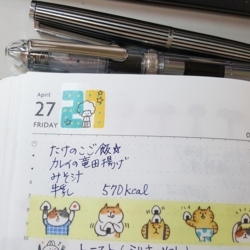 April
27
FRIDAY
たけのこご飯☆
カレイの竜田揚げ
みそ汁
牛乳 570kcal
トースト